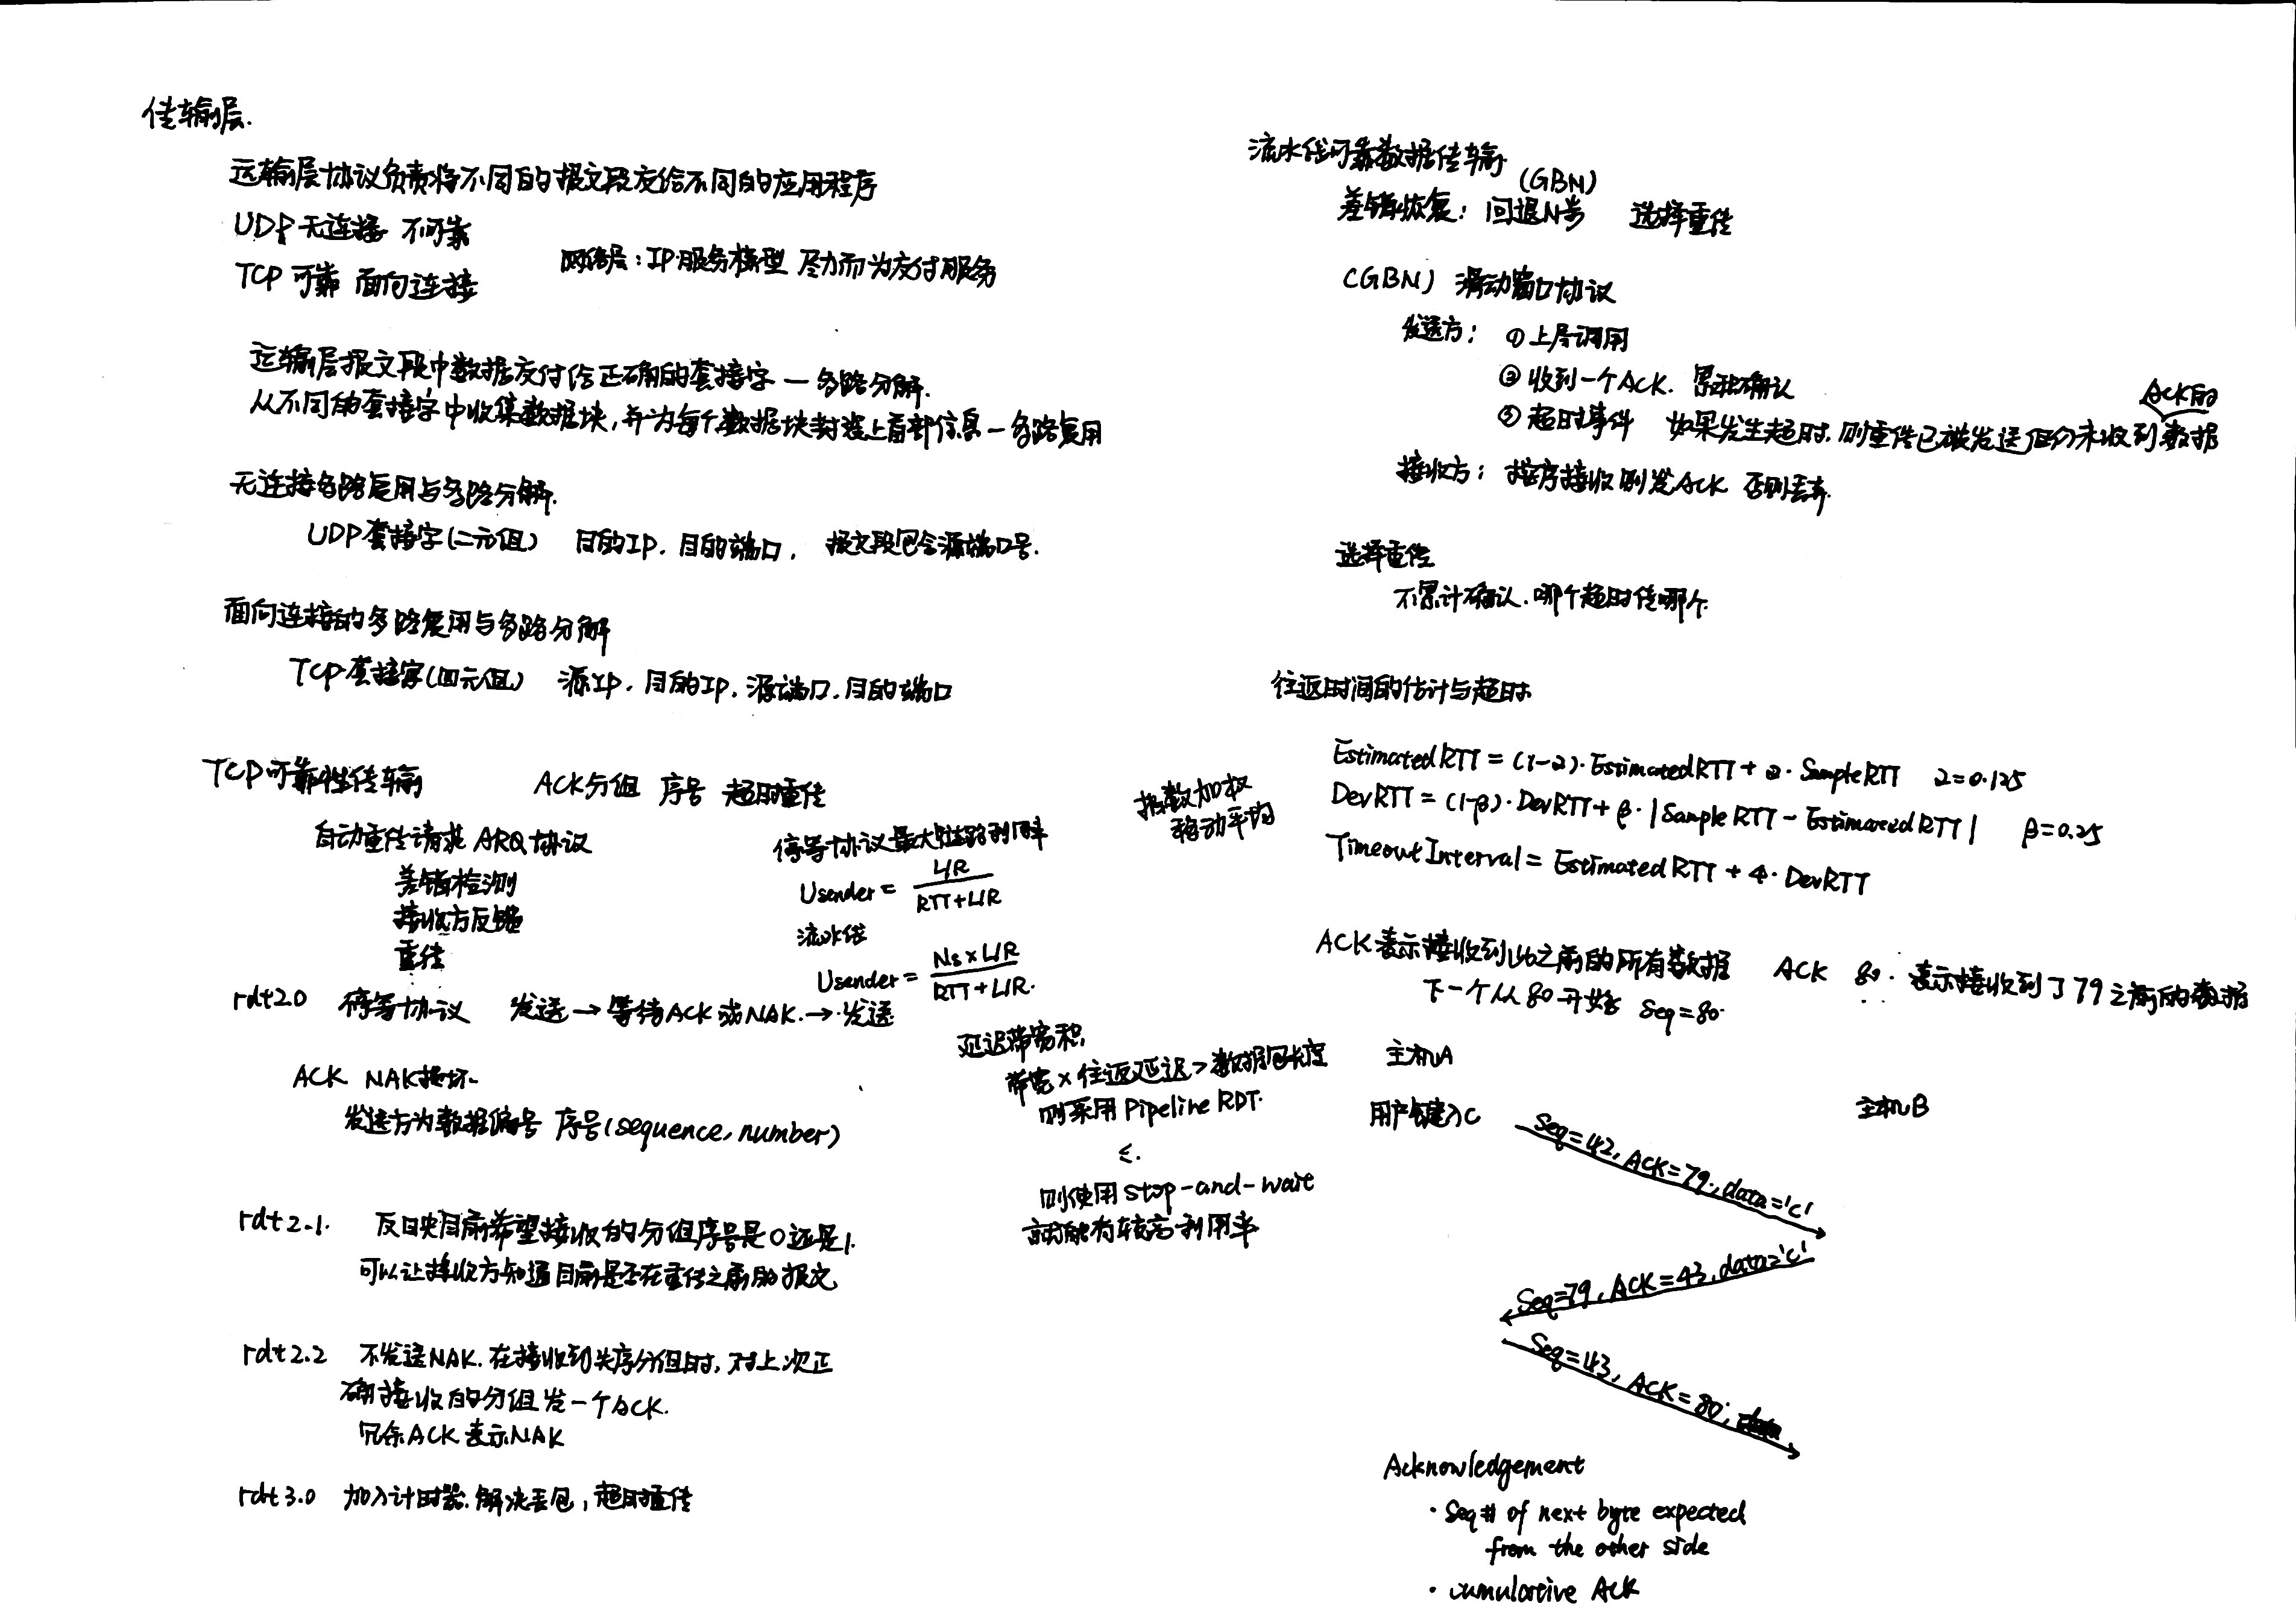 传输层.
运输层协议负责将不同的报文段交给不同的应用程序
UDP 无连接 不可靠
TCP 可靠 面向连接
网络层: IP服务模型 尽力而为交付服务
运输层报文段中数据交付给正确的套接字 — 多路分解.
从不同的套接字中收集数据块,并为每个数据块封装上首部信息 — 多路复用
无连接多路复用与多路分解.
UDP套接字(二元组) 目的IP. 目的端口, 报文段包含源端口号.
面向连接的多路复用与多路分解
TCP套接字(四元组) 源IP. 目的IP. 源端口. 目的端口
TCP可靠性传输 ACK分组 序号 超时重传
自动重传请求 ARQ协议
差错检测
接收方反馈
重传
停等协议最大链路利用率
Usender = L/R / RTT+L/R
流水线
Usender = Ns×L/R / RTT+L/R.
rdt2.0 停等协议 发送→等待ACK或NAK.→发送
ACK NAK损坏.
发送方为数据编号 序号(sequence, number)
延迟带宽积,
带宽×往返延迟>数据包长度
则采用 Pipeline RDT.
≤.
则使用 stop-and-wait
就能有较高利用率
rdt2.1. 反映目前希望接收的分组序号是0还是1.
可以让接收方知道目前是否在重传之前的报文
rdt2.2 不发送NAK. 在接收到失序分组时, 对上次正
确接收的分组发一个ACK.
冗余ACK表示NAK
rdt3.0 加入计时器. 解决丢包, 超时重传
流水线可靠数据传输
(GBN)
差错恢复: 回退N步 选择重传
(GBN) 滑动窗口协议
发送方: ①上层调用
②收到一个ACK. 累积确认
ACK的
③超时事件 如果发生超时, 则重传已被发送但仍未收到数据
接收方: 按序接收则发ACK 否则丢弃.
选择重传
不累计确认. 哪个超时传哪个.
往返时间的估计与超时
指数加权
移动平均
EstimatedRTT = (1-α)·EstimatedRTT + α·SampleRTT α=0.125
DevRTT = (1-β)·DevRTT + β·|SampleRTT - EstimatedRTT| β=0.25
TimeoutInterval = EstimatedRTT + 4·DevRTT
ACK表示接收到此之前的所有数据 ACK 80. 表示接收到了79之前的数据
下一个从80开始 Seq=80.
主机A
主机B
用户键入C
Seq=42, ACK=79, data='C'
Seq=79, ACK=43, data='C'
Seq=43, ACK=80,
Acknowledgement
· Seq# of next byte expected
from the other side
· cumulative ACK